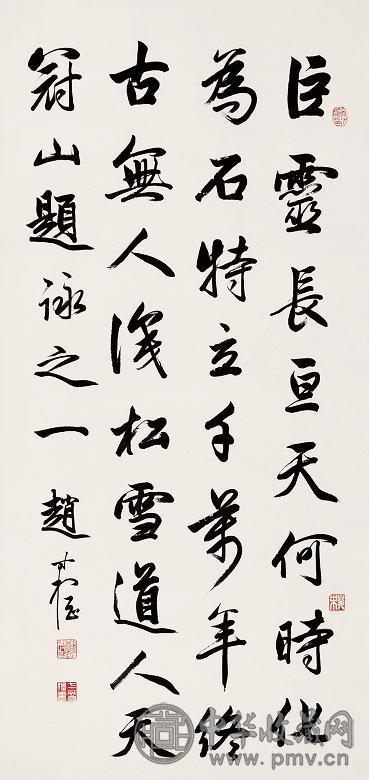 巨靈長亘天何時化
為石特立千萬年終
古無人識松雪道人天
冠山題詠之一 趙
中华收藏网
www.pmv.cn